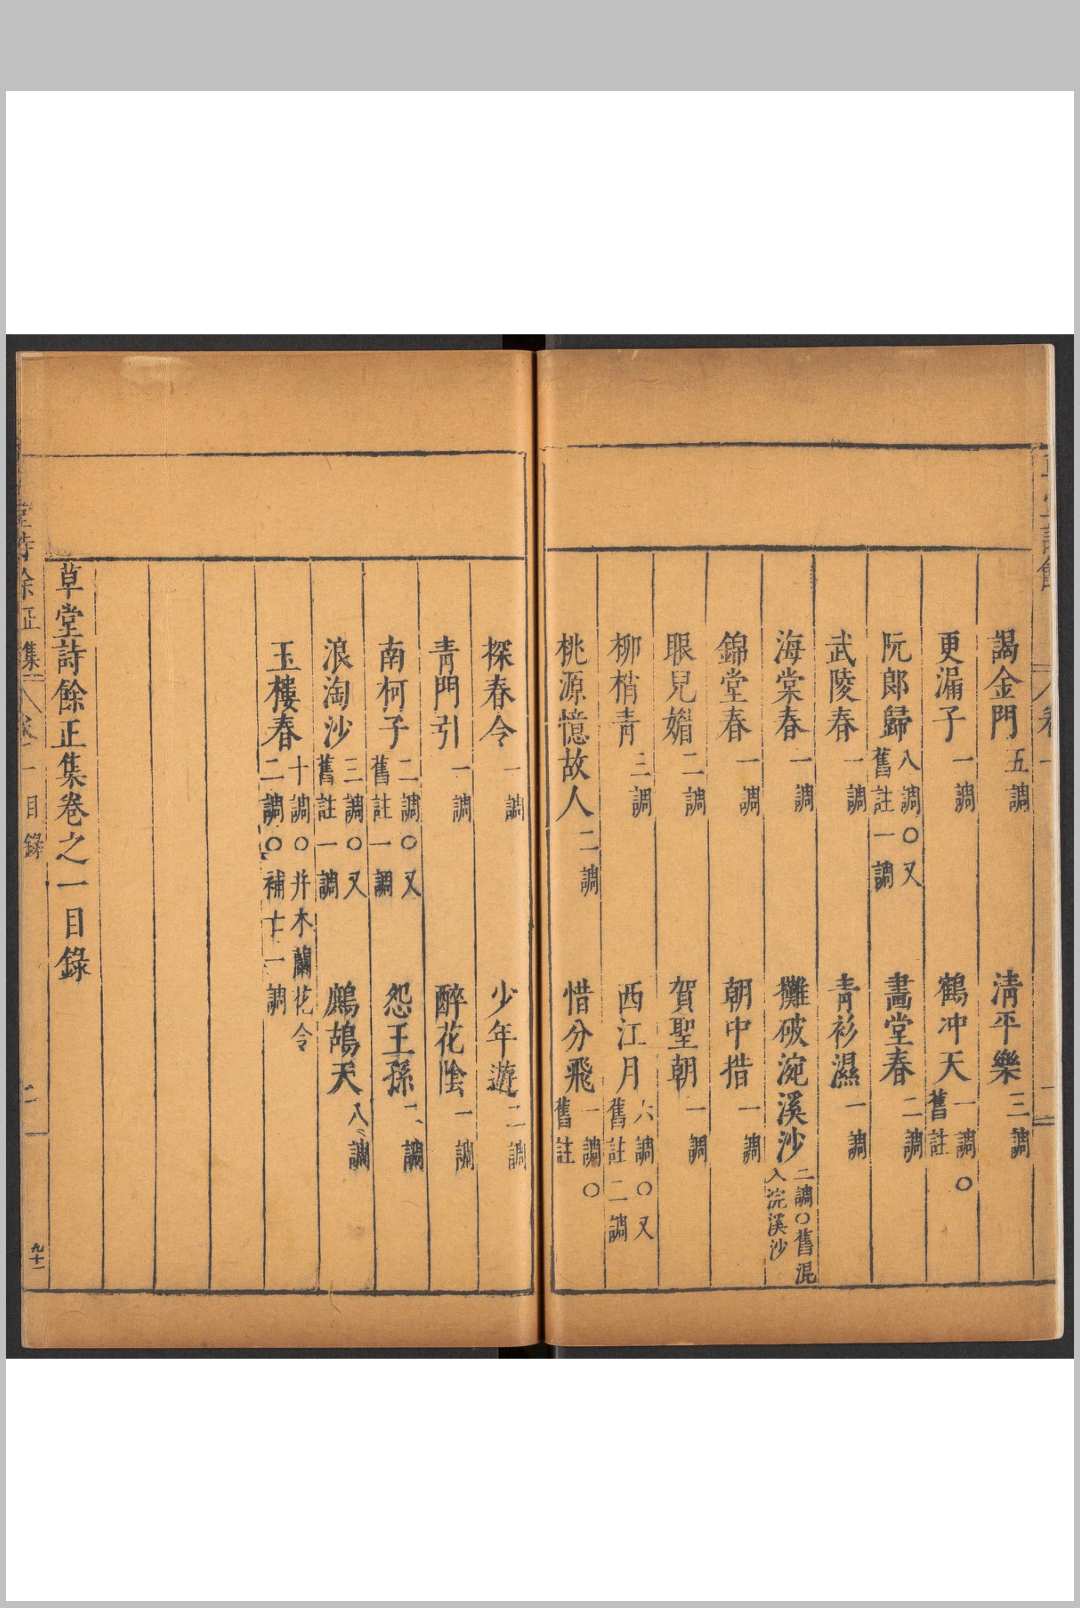 謁金門 五調 清平樂 三調
更漏子 一調 鶴冲天 一調○舊註
阮郞歸 八調○又舊註一調 畫堂春 二調
武陵春 一調 靑衫濕 一調
海棠春 一調 攤破浣溪沙 二調○舊混入浣溪沙
錦堂春 一調 朝中措 一調
眼兒媚 二調 賀聖朝 一調
柳梢靑 三調 西江月 六調○又舊註二調
桃源憶故人 二調 惜分飛 一調○舊註
探春令 一調 少年遊 二調
靑門引 一調 醉花陰 一調
南柯子 二調○又舊註一調 怨王孫 二調
浪淘沙 三調○又舊註一調 鷓鴣天 八調
玉樓春 十調○幷木蘭花令二調○補一調
草堂詩餘正集卷之一目錄
堂詩餘正集 卷一目錄